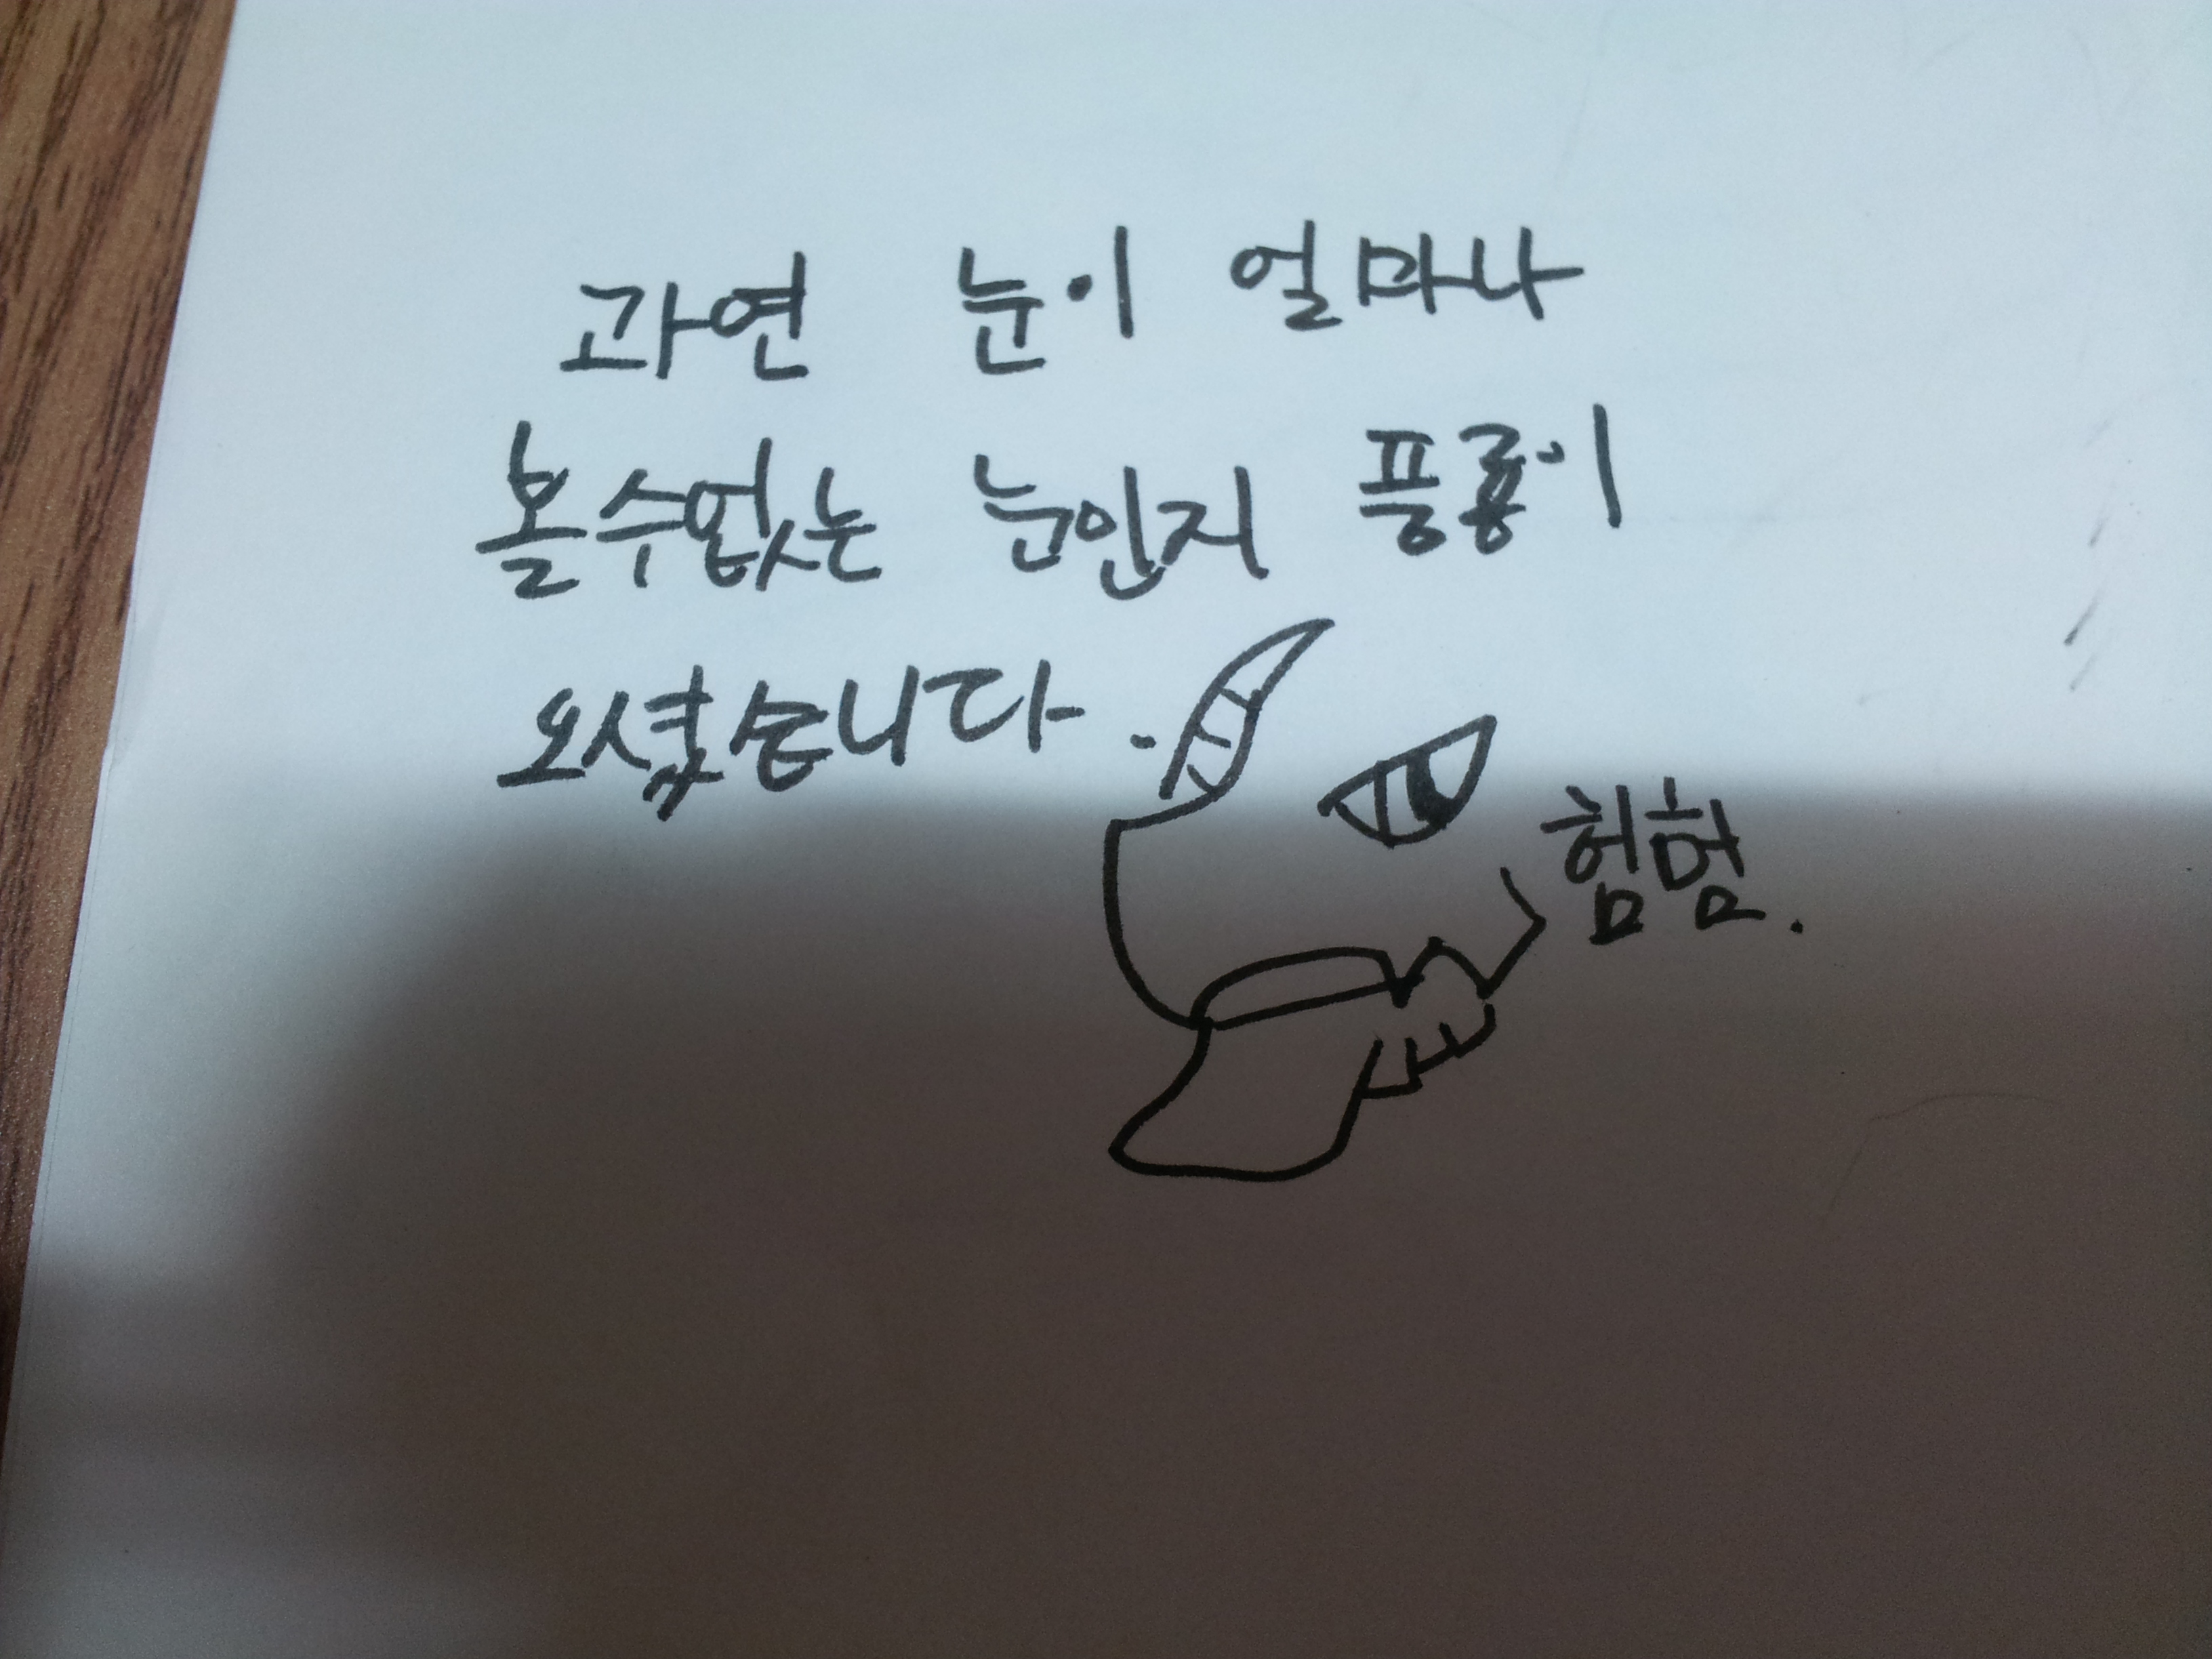 과연 눈이 얼마나
볼수없는 눈인지 풍룡이
오셨습니다.
험험.